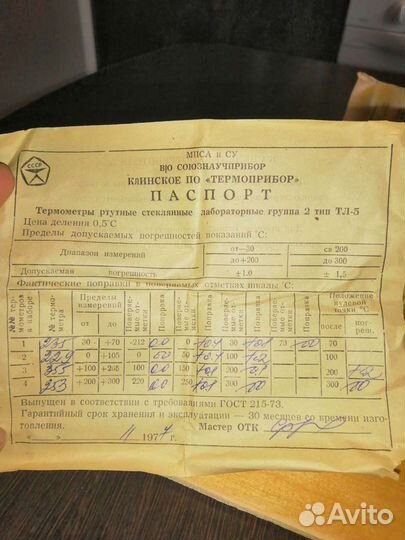 МПСА и СУ
СССР
В/О СОЮЗНАУЧПРИБОР
КЛИНСКОЕ ПО «ТЕРМОПРИБОР»
ПАСПОРТ
Термометры ртутные стеклянные лабораторные группа 2 тип ТЛ-5
Цена деления 0,5°С
Пределы допускаемых погрешностей показаний °С:
Диапазон измерений от—30 до +200 св 200 до 300
Допускаемая погрешность ±1.0 ± 1,5
Фактические поправки в поверяемых отметках шкалы °С:
№№ термометров в наборе № термометра Пределы измерений от до Поверяемые отметки Поправка Поверяемые отметки Поправка Поверяемые отметки Поправка Поверяемые отметки Поправка Положение нулевой точки °С после погреш.
1 30 +70 0,0 0 30 70 70
2 229 0 +105 0 50 100 100
3 355 +100 +205 100 0,0 150 200 200
4 253 +200 +300 220 0,0 250 300 300
Выпущен в соответствии с требованиями ГОСТ 215-73.
Гарантийный срок хранения и эксплуатации — 30 месяцев со времени изготовления.
Мастер ОТК
« » 11 1977 г.
Avito